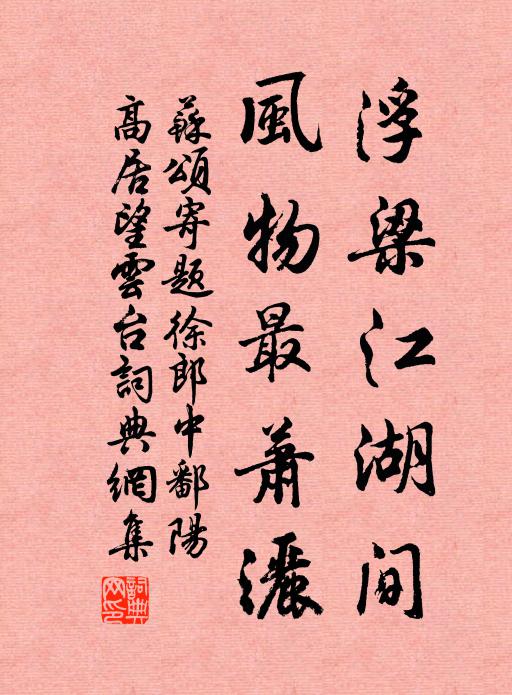 浮梁江湖间
風物最蕭灑
蘇頌寄题徐郎中鄱陽
高居望雲台詞典網集
詞典网印